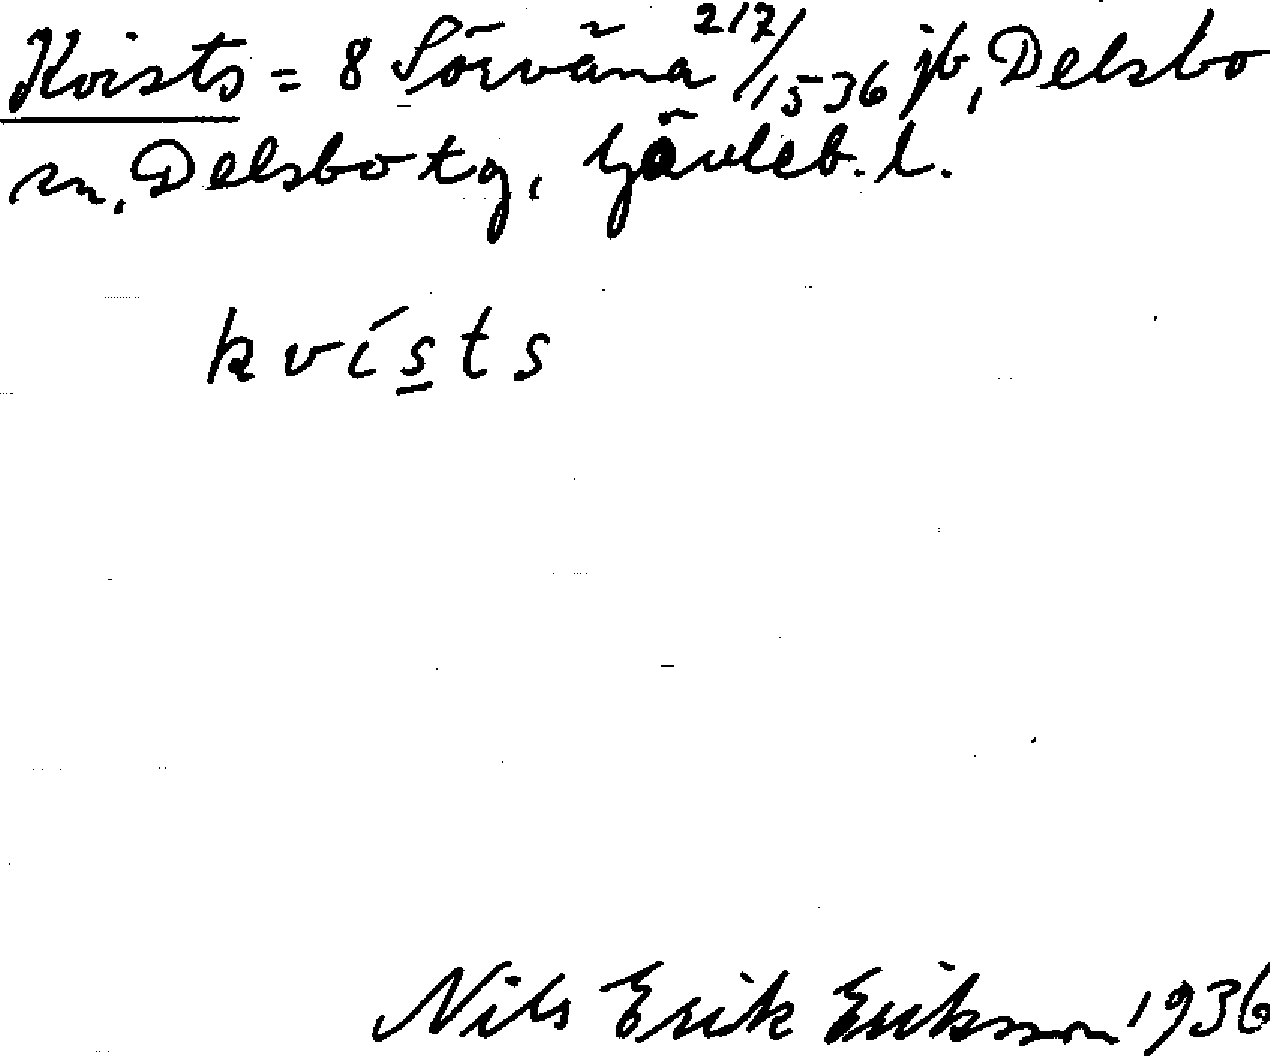 Kvists = 8 Sörväna 217/1536 jb, Delsbo
sn, Delsbo tg, Gävleb. l.
kvísts
Nils Erik Eriksson 1936